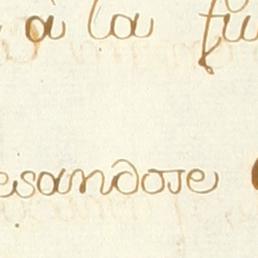 a la fu
esandose